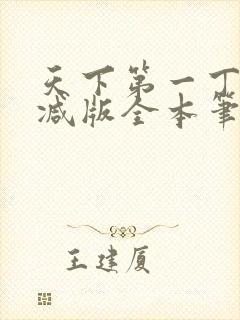 天下第一丁
减版全本筆
王建厦